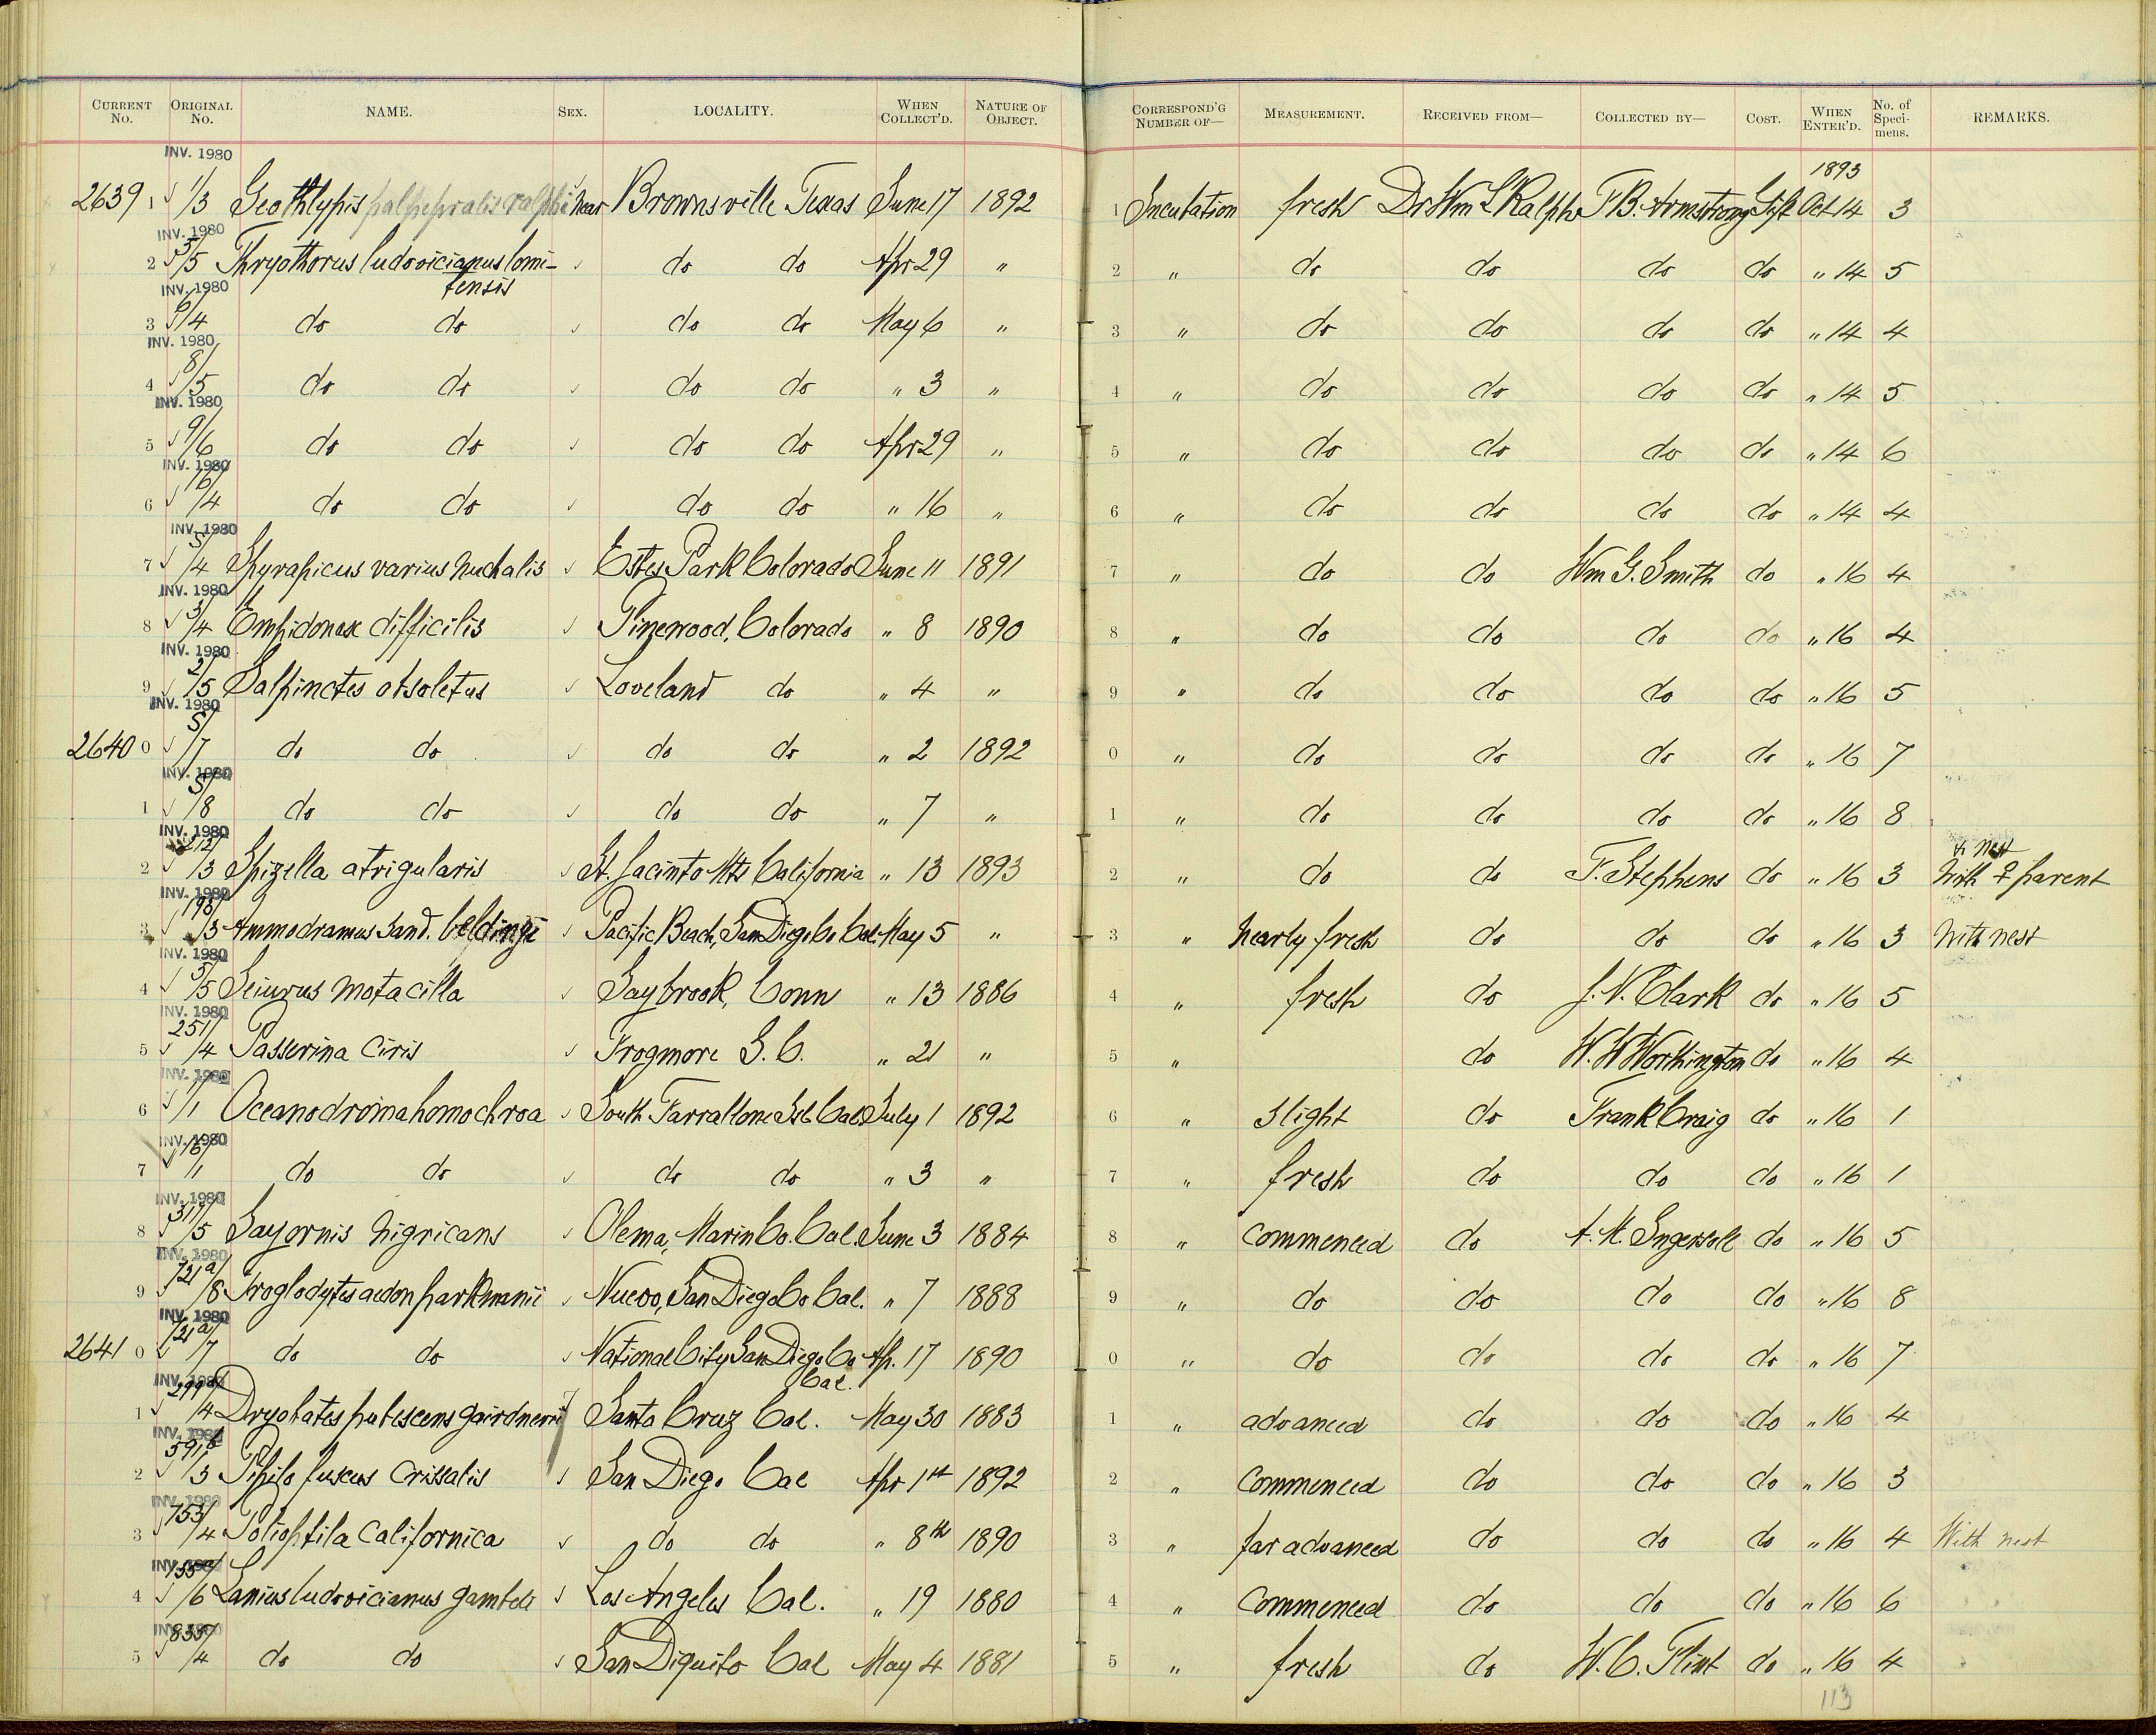 CURRENT No. ORIGINAL No. NAME. SEX. LOCALITY. WHEN COLLECT'D. NATURE OF OBJECT. CORRESPOND'G NUMBER OF— MEASUREMENT. RECEIVED FROM— COLLECTED BY— COST. WHEN ENTER'D. No. of Speci-mens. REMARKS.
INV. 1980 1893
2639 1 1/3 Geothlypis palpepralis ralphi near Brownsville Texas June 17 1892 1 Incubation fresh Dr Wm L Ralph F B. Armstrong Gift Oct 14 3
INV. 1980
2 5/5 Thryothorus ludovicianus lomi- do do Apr 29 " 2 " do do do do " 14 5
INV. 1980 tensis
3 6/4 do do do do May 6 " 3 " do do do do " 14 4
INV. 1980
4 8/5 do do do do " 3 " 4 " do do do do " 14 5
INV. 1980
5 9/6 do do do do Apr 29 " 5 " do do do do " 14 6
INV. 1980
6 16/4 do do do do " 16 " 6 " do do do do " 14 4
INV. 1980
7 5/4 Sphyrapicus varius nuchalis Estes Park Colorado June 11 1891 7 " do do Wm G. Smith do " 16 4
INV. 1980
8 3/4 Empidonax difficilis Pinewood, Colorado " 8 1890 8 " do do do do " 16 4
INV. 1980
9 2/5 Salpinctes obsoletus Loveland do " 4 " 9 " do do do do " 16 5
INV. 1980
2640 0 5/7 do do do do " 2 1892 0 " do do do do " 16 7
INV. 1980
1 5/8 do do do do " 7 " 1 " do do do do " 16 8
INV. 1980 & nest
2 212/3 Spizella atrigularis St. Jacinto Mts California " 13 1893 2 " do do F. Stephens do " 16 3 With ♀ parent
INV. 1980
3 198/3 Ammodramus Sand. beldingi Pacific Beach, San Diego Co Cal. May 5 " 3 " nearly fresh do do do " 16 3 With nest
INV. 1980
4 5/5 Seiurus motacilla Saybrook, Conn " 13 1886 4 " fresh do J. N. Clark do " 16 5
INV. 1980
5 251/4 Passerina ciris Frogmore S. C. " 21 " 5 " do W. W Worthington do " 16 4
INV. 1980
6 1/1 Oceanodroma homochroa South Farrallone Isl. Cal July 1 1892 6 " slight do Frank Craig do " 16 1
INV. 1980
7 16/1 do do do do " 3 " 7 " fresh do do do " 16 1
INV. 1980
8 311/5 Sayornis nigricans Olema, Marin Co. Cal. June 3 1884 8 " commenced do A. M. Ingersoll do " 16 5
INV. 1980
9 721a/8 Troglodytes aedon parkmanii Nuevo, San Diego Co Cal. " 7 1888 9 " do do do do " 16 8
INV. 1980
2641 0 721a/7 do do National City San Diego Co Ap. 17 1890 0 " do do do do " 16 7
INV. 1980 Cal.
1 299/4 Dryobates pubescens gairdnerii Santa Cruz Cal. May 30 1883 1 " advanced do do do " 16 4
INV. 1980
2 591/3 Pipilo fuscus crissalis San Diego Cal Apr 1st 1892 2 " commenced do do do " 16 3
INV. 1980
3 753/4 Polioptila californica do do " 8th 1890 3 " far advanced do do do " 16 4 With nest
INV. 1980
4 /6 Lanius ludovicianus gambeli Los Angeles Cal. " 19 1880 4 " commenced do do do " 16 6
INV. 1980
5 /4 do do San Diquito Cal May 4 1881 5 " fresh do W. C. Flint do " 16 4
113